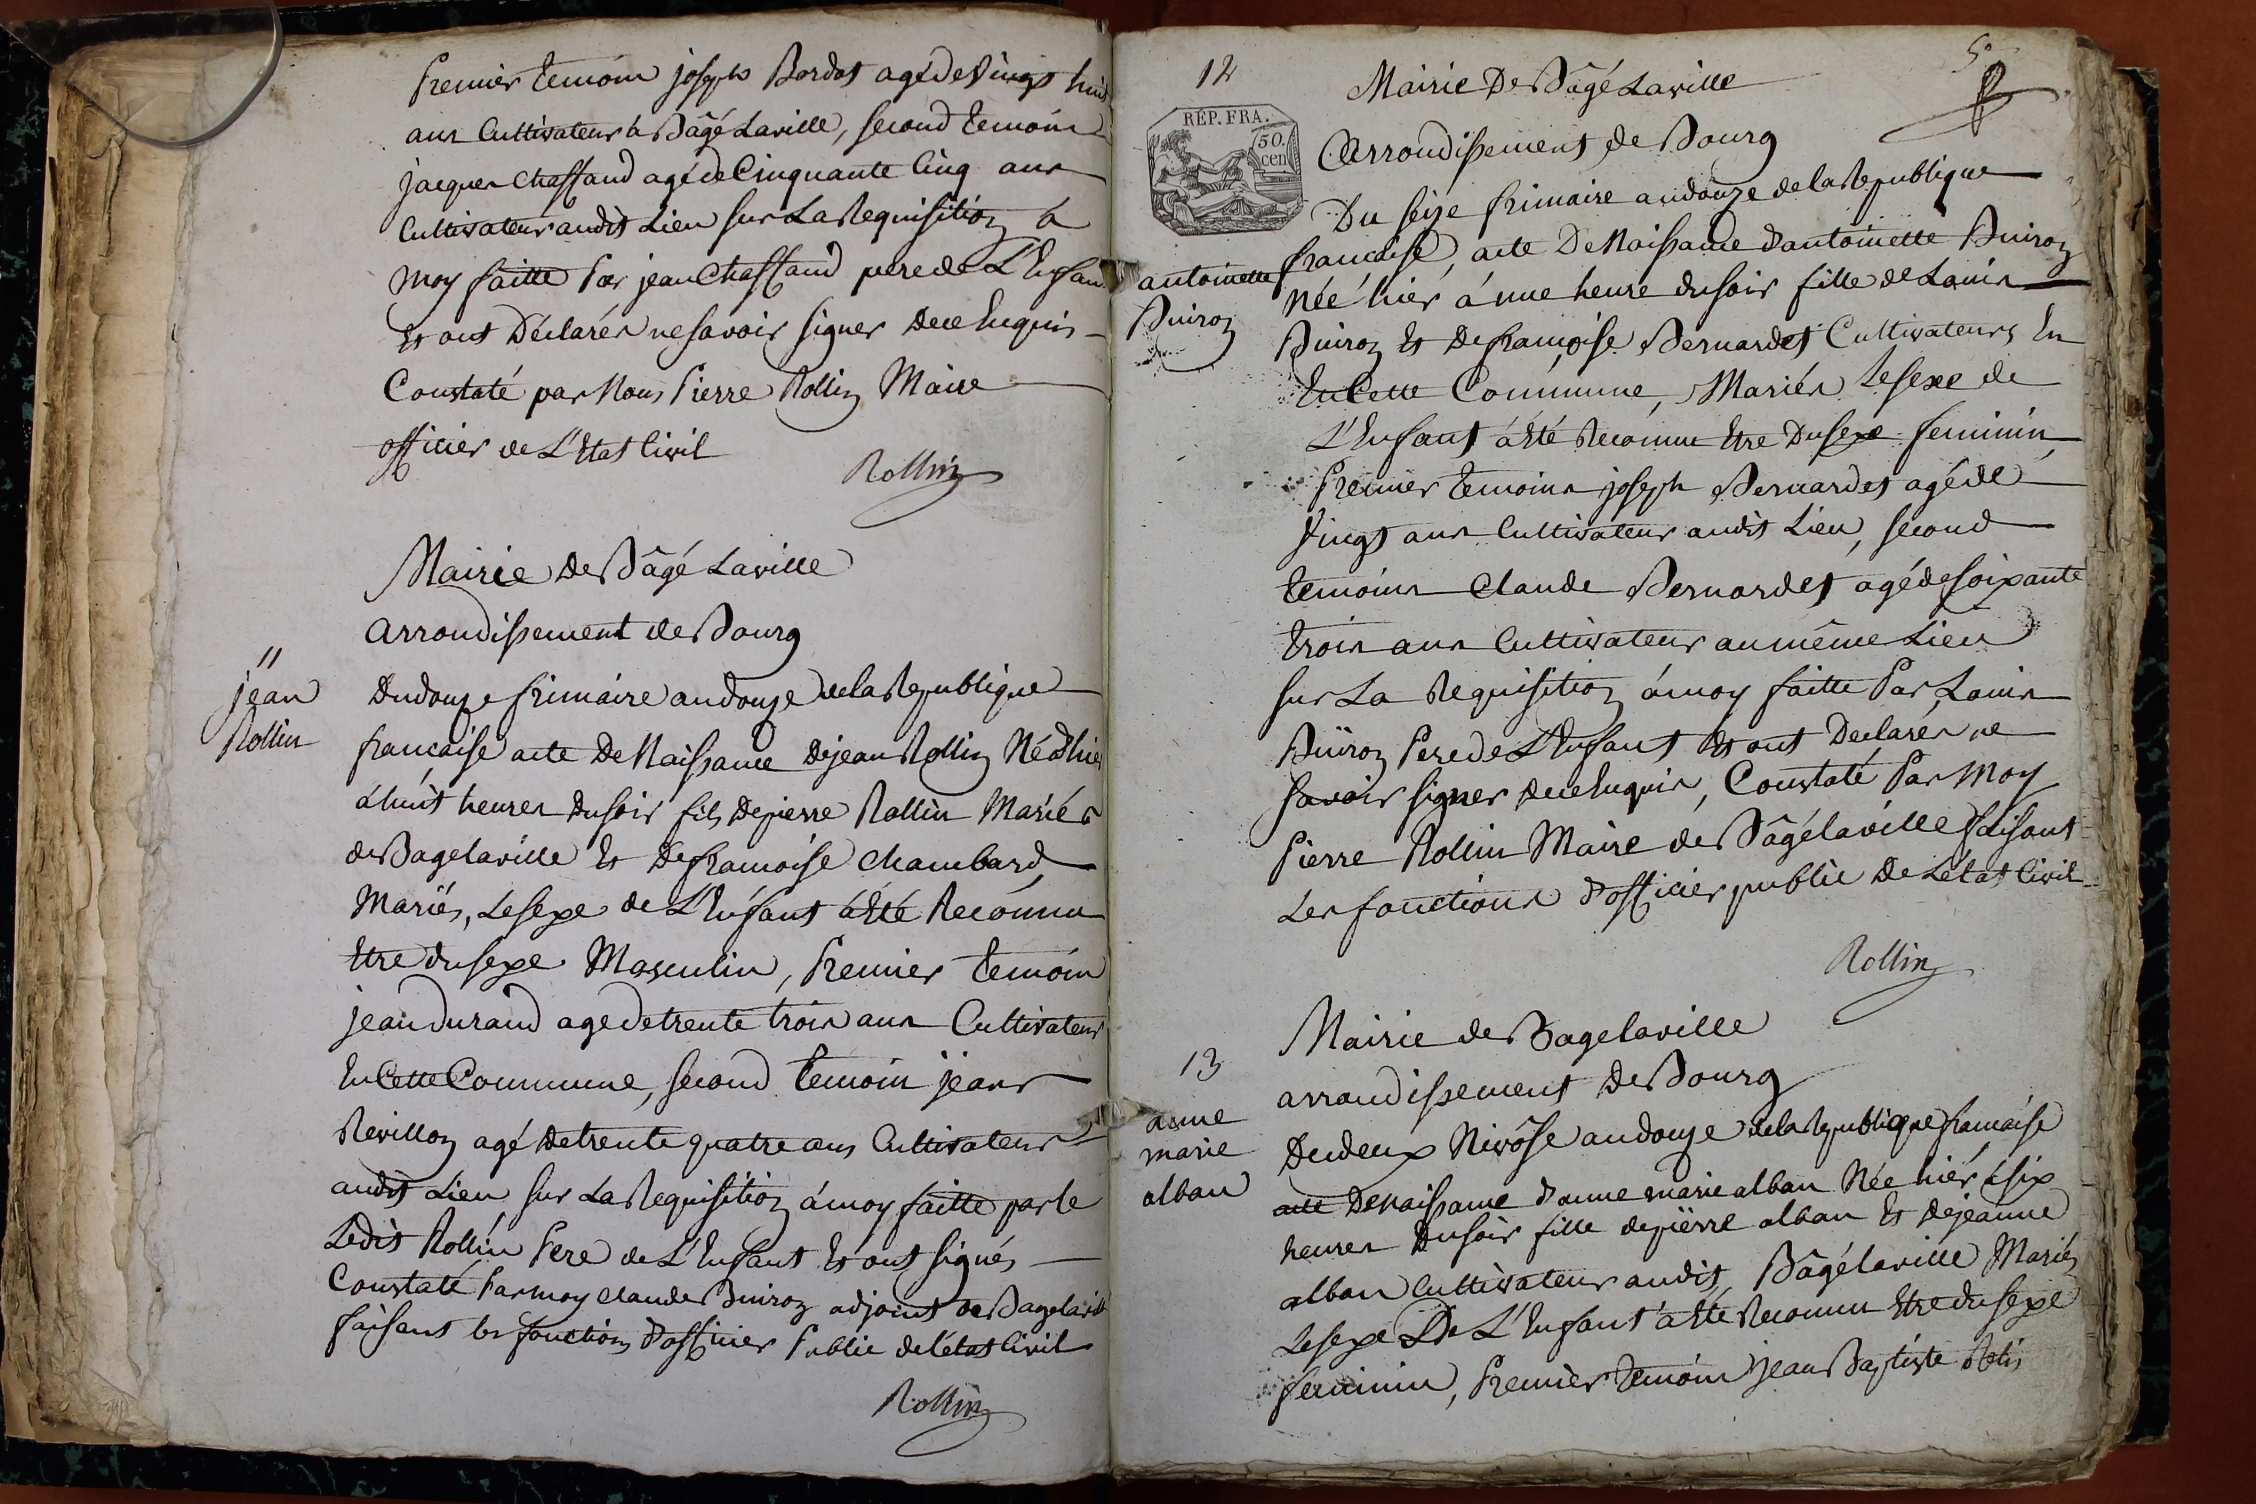 Premier temoin joseph Bordat agé de Vingt huit
ans Cultivateur à Bâgé Laville, second temoin
jacques Chaffaud agé de Cinquante Cinq ans
Cultivateur audit Lieu sur La Requisition à
moy faitte Par jean Chaffaud pere de L'Enfant
Et ont Déclarés ne savoir signer de ce Enquis
Constaté par Nous Pierre Rollin Maire
officier de L'Etat Civil
Rollin
Mairie de Bâgé Laville
arrondissement de Bourg
11
jean
Rollin
Du douze frimaire an douze de la Republique
francaise acte De Naissance De jean Rollin Né d'hier
à huit heures du soir fils De pierre Rollin Marié
de Bagelaville Et De francoise Chambard
Mariés, Le sexe de L'Enfant à Eté Reconnu
Etre du sexe Masculin, Premier temoin
jean durand age de trente trois ans Cultivateur
En Cette Commune, second temoin jean
Revillon agé De trente quatre ans Cultivateur
audit Lieu sur La Requisition à moy faitte par le
Ledit Rollin Pere de L'Enfant Et ont signés
Constaté Par moy Claude Buiron adjoint de Bagelaville
faisant les fonctions d'officier Public de l'état Civil
Rollin
12
5e
Mairie De Bâgé Laville
RÉP. FRA.
50.
cen
Arrondissement de Bourg
Du seize frimaire an douze de la Republique
antoinette
Buiron
francaise, acte De Naissance d'antoinette Buiron
Née hier à une heure du soir fille de Louis
Buiron Et De francoise Bernardet Cultivateurs En
En Cette Commune, Mariés Le sexe de
L'Enfant à Eté Reconnu Etre Du sexe feminin,
Premier temoins joseph Bernardet agé de
Vingt ans Cultivateur audit Lieu, second
temoins Claude Bernardet agé de soixante
trois ans Cultivateur au même Lieu
sur La Requisition à moy faitte Par Louis
Buiron Pere de L'Enfant Et ont Declarés ne
savoir signer de ce Enquis, Constaté Par Moy
Pierre Rollin Maire de Bâgélaville faisant
Les fonctions d'officier public De L'état Civil
Rollin
Mairie de Bagelaville
13
anne
marie
alban
arrondissement De Bourg
Du deux Nivôse an douze de la Republique francaise
acte De naissance d'anne marie alban Née hier à six
heures Du soir fille de pierre alban Et De jeanne
alban Cultivateur audit Bâgélaville Mariés
Le sexe De L'Enfant à Eté Reconnu Etre du sexe
feminin, Premier temoin Jean Baptiste